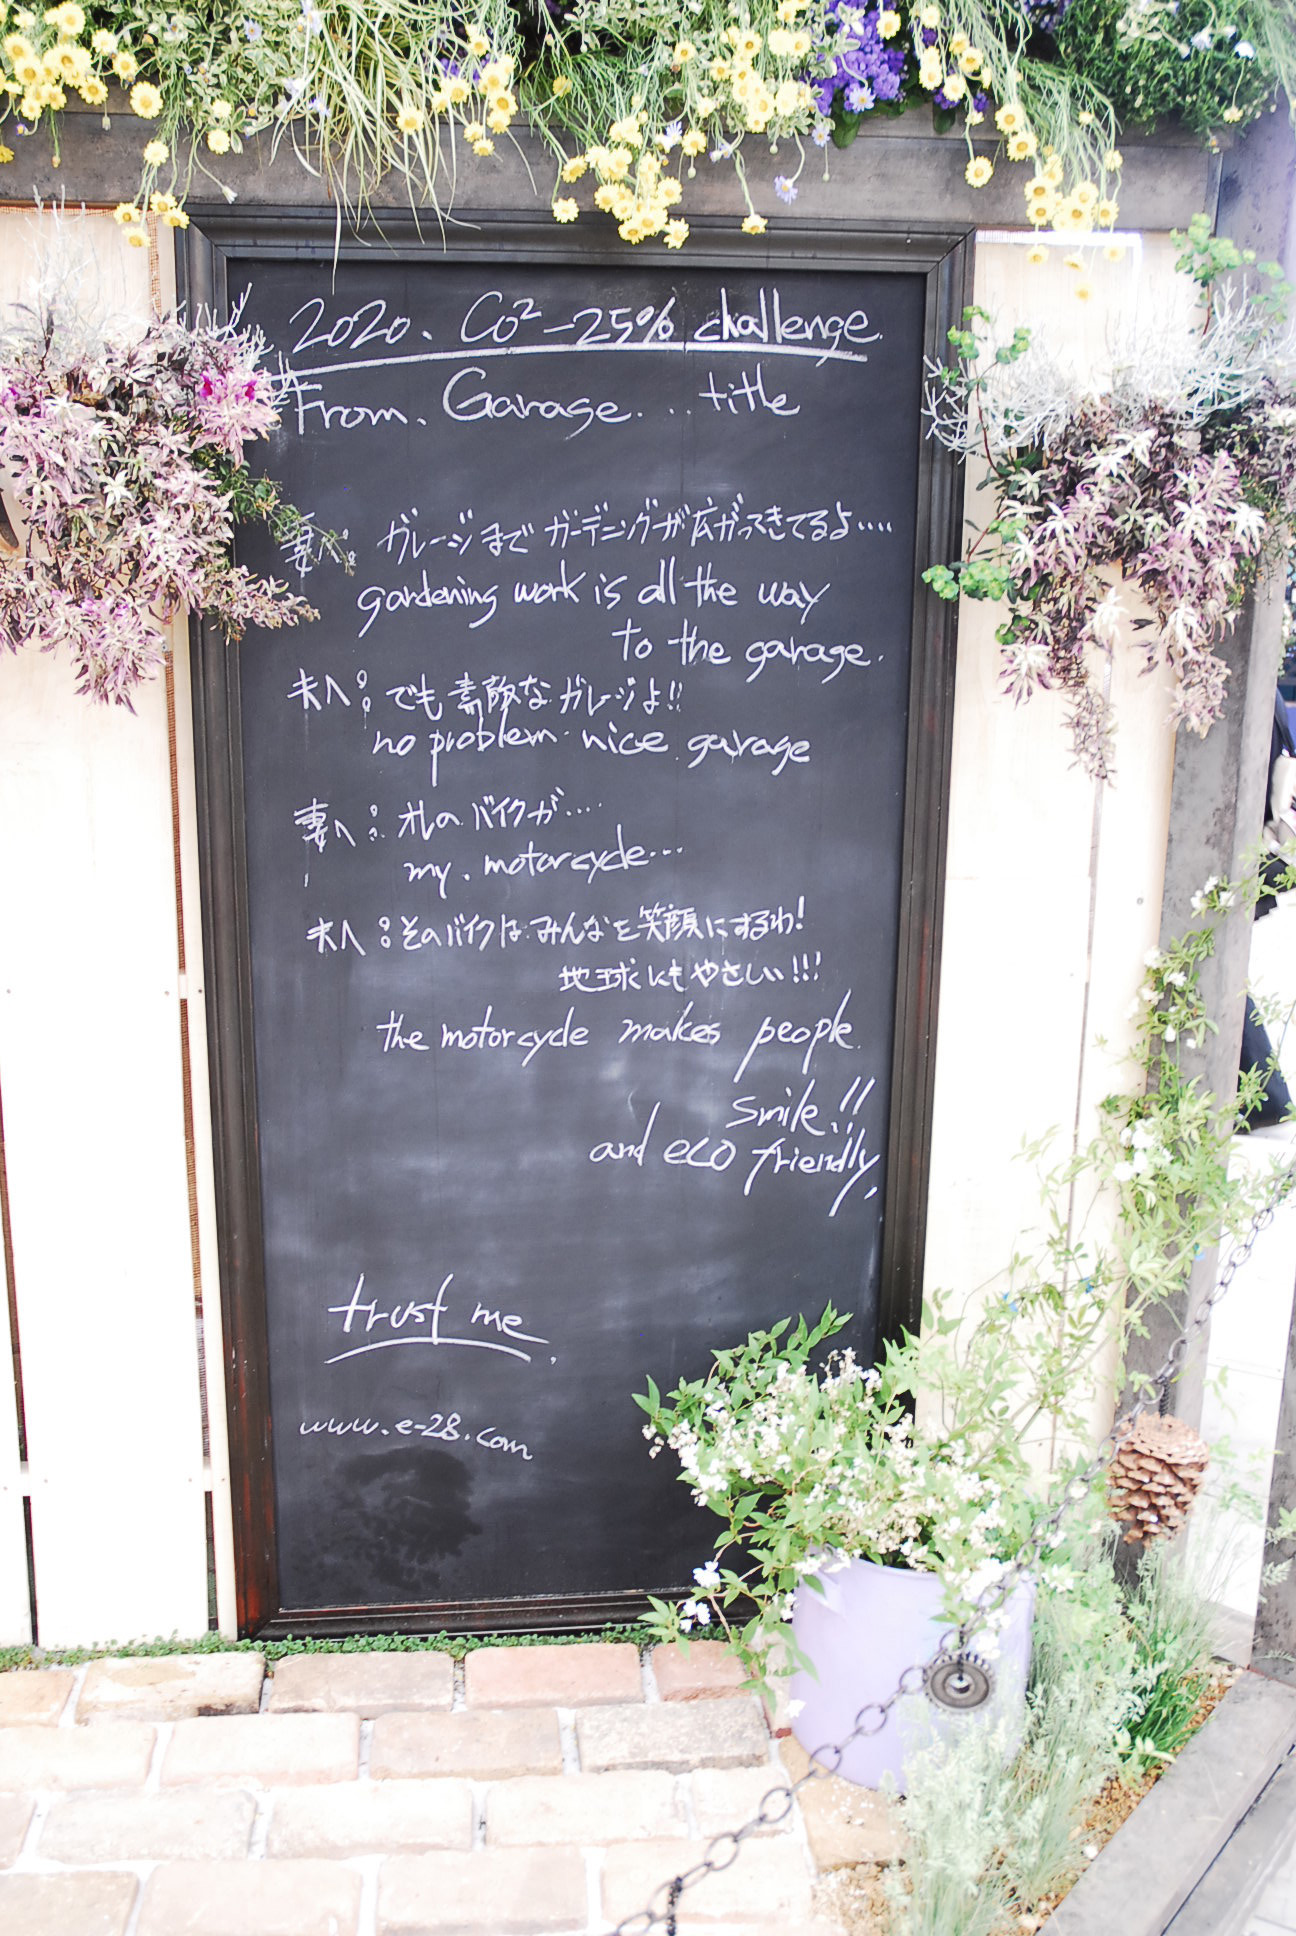 2020. Co²-25% challenge.
From. Garage... title
妻へ: ガレージまでガーデニングが広がってきてるよ....
gardening work is all the way
to the garage.
夫へ: でも素敵なガレージよ!!
no problem. nice garage
妻へ: オレの バイクが....
my. motorcycle...
夫へ: そのバイクは みんなを笑顔にするわ!
地球にもやさしい!!!
the motorcycle makes people.
smile.!!
and eco friendly.
trust me.
www.e-28.com